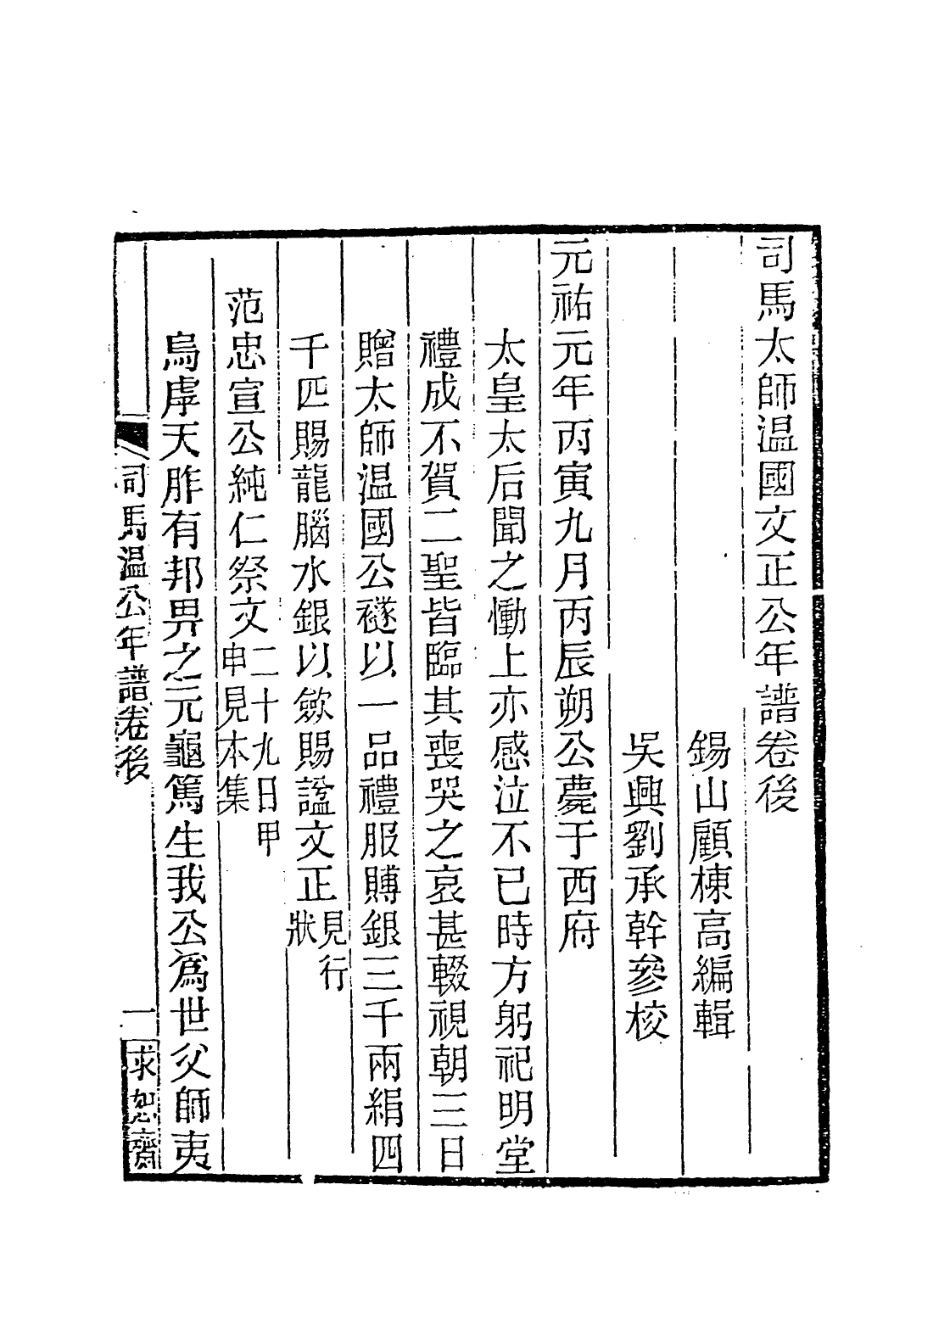 司馬太師温國文正公年譜卷後
錫山顧棟高編輯
吳興劉承幹參校
元祐元年丙寅九月丙辰朔公薨于西府
太皇太后聞之慟上亦感泣不已時方躬祀明堂
禮成不賀二聖皆臨其喪哭之哀甚輟視朝三日
贈太師温國公襚以一品禮服賻銀三千兩絹四
千匹賜龍腦水銀以斂賜諡文正見行狀
范忠宣公純仁祭文二十九日甲申見本集
烏虖天胙有邦畀之元龜篤生我公爲世父師夷
司馬温公年譜卷後
一
求恕齋